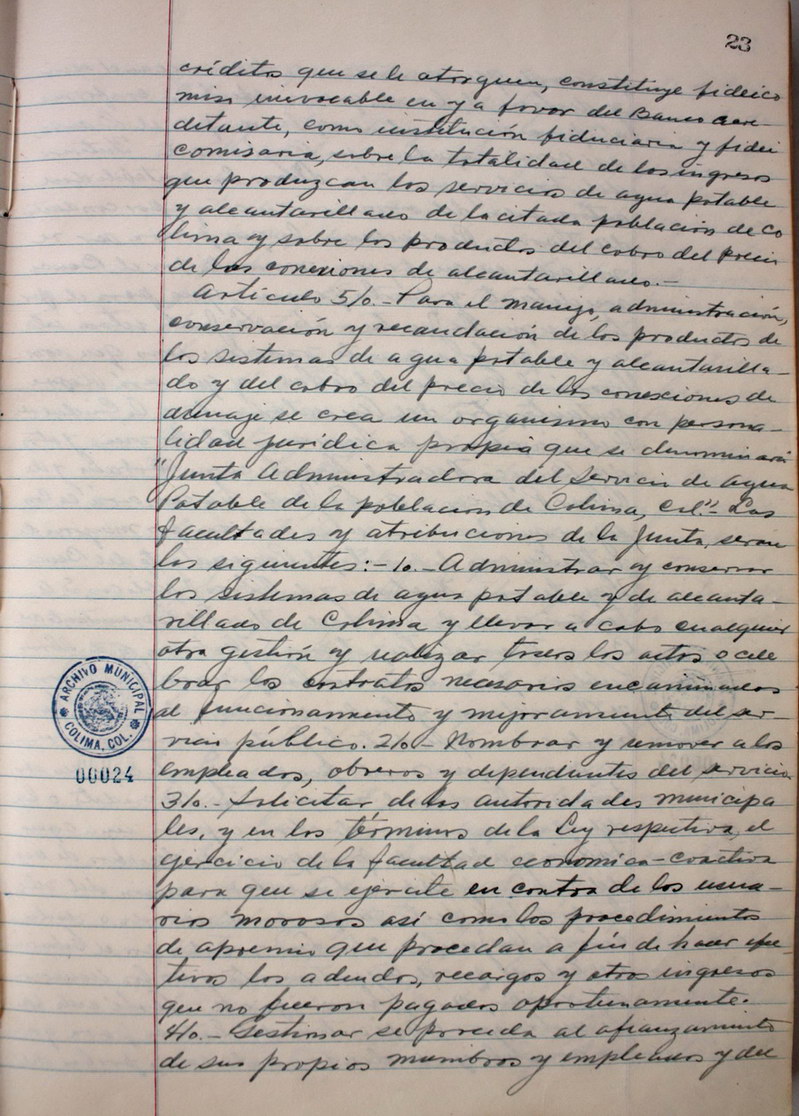 23
créditos que se le otorguen, constituye fideico
miso irrevocable en y a favor del Banco acre-
ditante, como institución fiduciaria y fidei
comisaria, sobre la totalidad de los ingresos
que produzcan los servicios de agua potable
y alcantarillado de la citada población de Co
lima y sobre los productos del cobro del precio
de las conexiones de alcantarillado.-
Artículo 5/o.- Para el manejo, administración,
conservación y recaudación de los productos de
los sistemas de agua potable y alcantarilla-
do y del cobro del precio de las conexiones de
drenaje se crea un organismo con persona-
lidad jurídica propia que se denominará
"Junta Administradora del Servicio de Agua
Potable de la población de Colima, Col."- Las
facultades y atribuciones de la Junta, serán
las siguientes:- 1o.- Administrar y conservar
los sistemas de agua potable y de alcanta-
rillado de Colima y llevar a cabo cualquier
otra gestión y realizar todos los actos o cele
brar los contratos necesarios encaminados
al funcionamiento y mejoramiento del ser-
vicio público. 2/o- Nombrar y remover a los
empleados, obreros y dependientes del servicio
3/o.- Solicitar de las autoridades municipa
les, y en los términos de la Ley respectiva, el
ejercicio de la facultad económica-coactiva
para que se ejercite en contra de los usua-
rios morosos así como los procedimientos
de apremio que procedan a fin de hacer efec-
tivos los adeudos, recargos y otros ingresos
que no fueron pagados oportunamente.
4/o.- Gestionar se proceda al afianzamiento
de sus propios miembros y empleados y del
ARCHIVO MUNICIPAL
COLIMA, COL.
00024